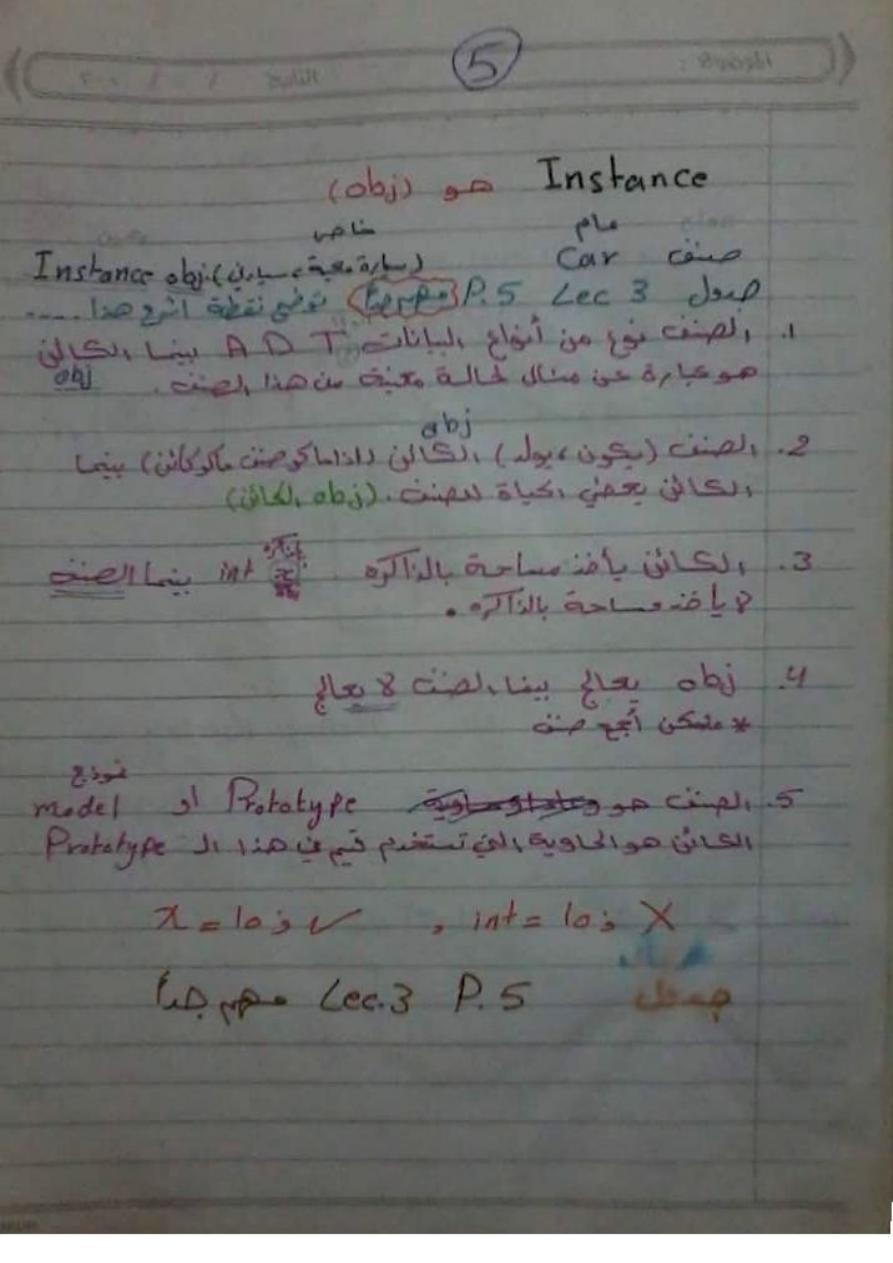 5
Instance هو (obj)
عام خاص
صنف Car (سيارة معينة، سيارتي) Instance obj
جدول P.5 Lec 3 مهم جداً توضيح نقطة اشرح هذا .....
1. الصنف نوع من أنواع البيانات ADT بينما الكائن
هو عبارة عن مثال لحالة معينة من هذا الصنف. obj
obj
2. الصنف (يكون، يولد) الكائن (اذا ماكو صنف ماكو كائن) بينما
الكائن يعطي الحياة للصنف. (obj الكائن)
3. الكائن يأخذ مساحة بالذاكره int x بينما الصنف
لا يأخذ مساحة بالذاكره.
4. obj يعالج بينما الصنف لا يعالج
* ممكن أجمع صنف
نموذج
5. الصنف هو Prototype أو model
الكائن هو الحاوية التي تستخدم قيم في هذا الـ Prototype
x = 10; ✓ , int = 10; X
جدول P.5 Lec.3 مهم جداً